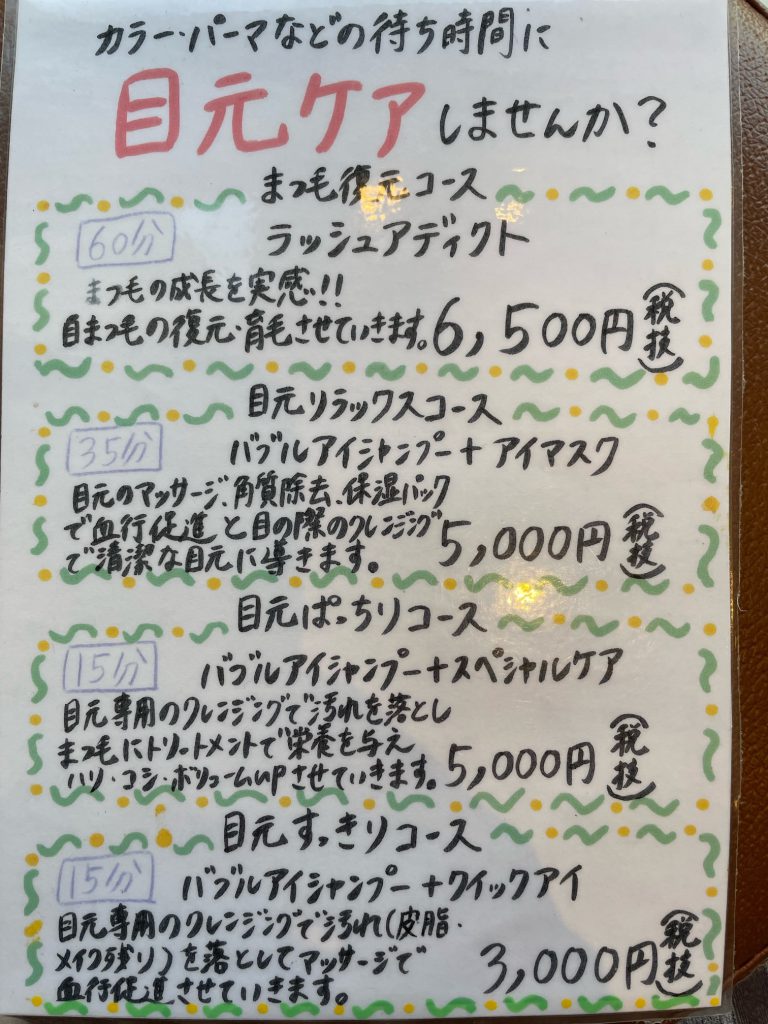 カラー・パーマなどの待ち時間に
目元ケアしませんか?
まつ毛復元コース
60分
ラッシュアディクト
まつ毛の成長を実感!!
自まつ毛の復元・育毛させていきます。
6,500円(税技)
目元リラックスコース
35分
バブルアイシャンプー+アイマスク
目元のマッサージ、角質除去、保湿パック
で血行促進と目の際のクレンジング
で清潔な目元に導きます。
5,000円(税技)
目元ぱっちりコース
15分
バブルアイシャンプー+スペシャルケア
目元専用のクレンジングで汚れを落とし
まつ毛にトリートメントで栄養を与え
ハリ・コシ・ボリュームupさせていきます。
5,000円(税技)
目元すっきりコース
15分
バブルアイシャンプー+クイックアイ
目元専用のクレンジングで汚れ(皮脂・
メイク残り)を落としてマッサージで
血行促進させていきます。
3,000円(税技)